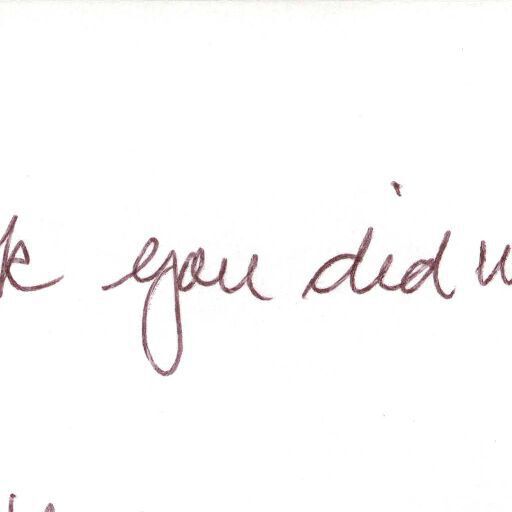 k you did w